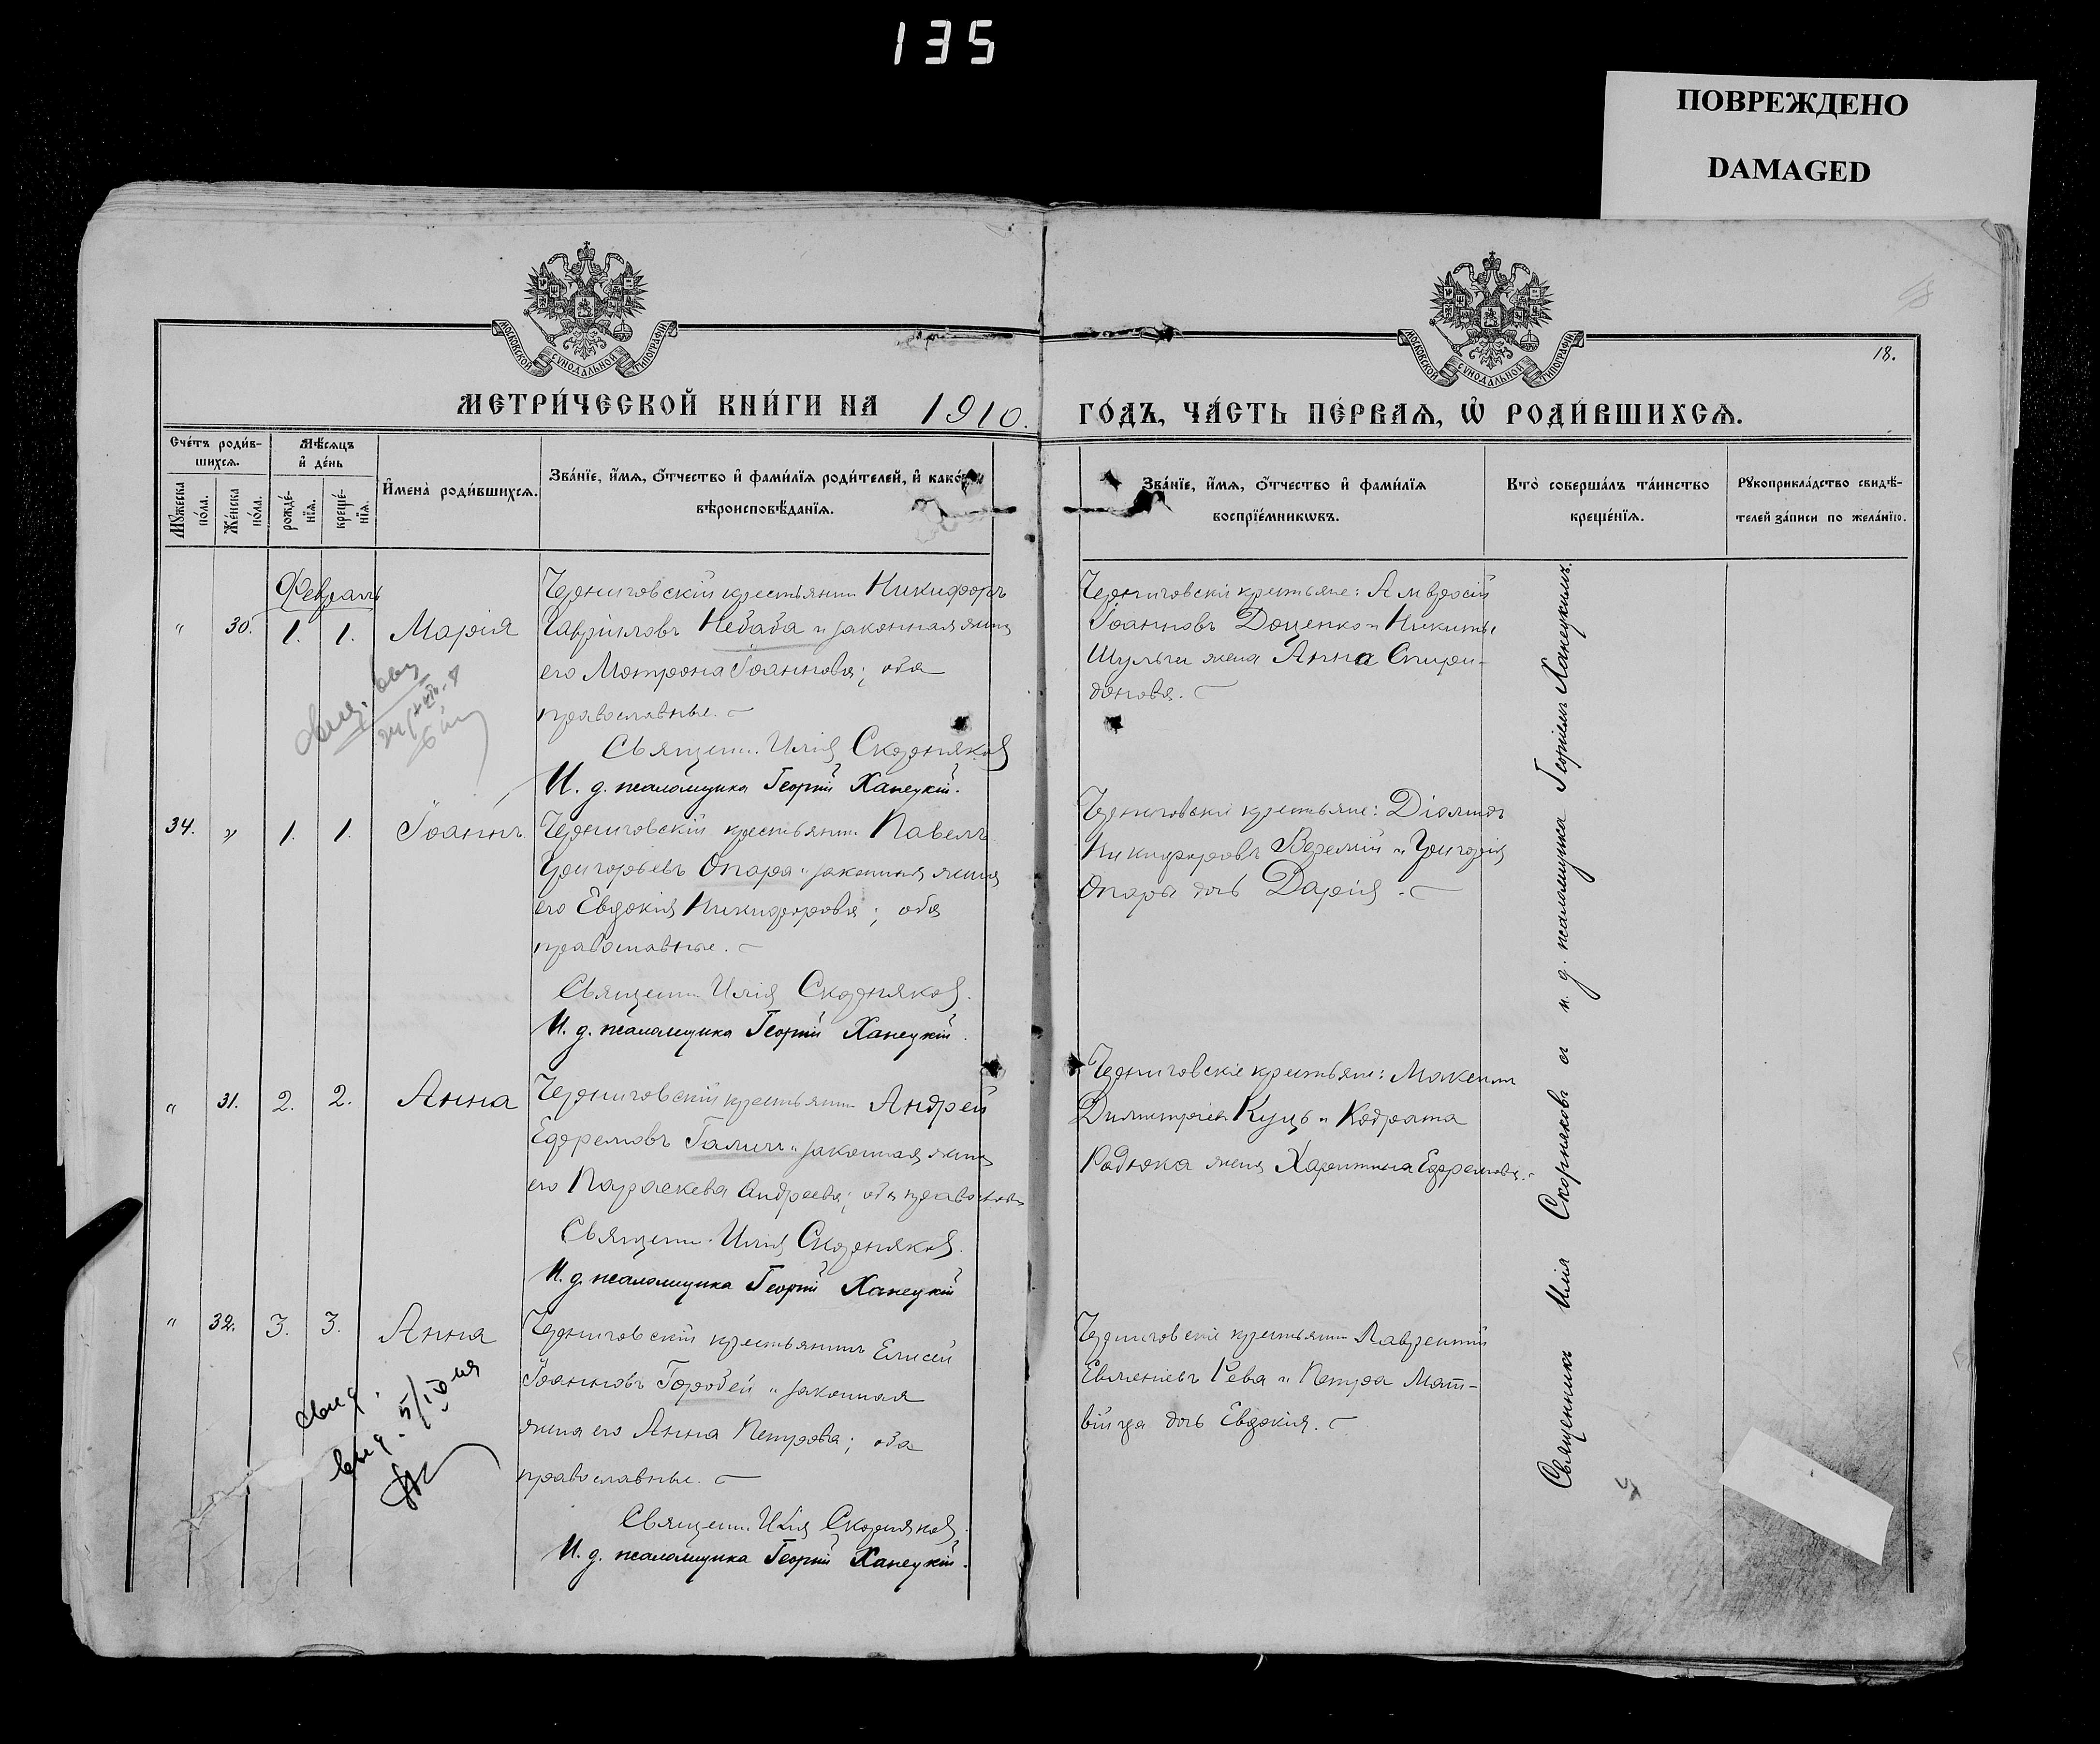 135
ПОВРЕЖДЕНО
DAMAGED
МОСКОВСКОЙ СѴНОДАЛЬНОЙ ТИПОГРАФІИ
МОСКОВСКОЙ СѴНОДАЛЬНОЙ ТИПОГРАФІИ
18.
МЕТРИ́ЧЕСКОЙ КНИ́ГИ НА 1910.
ГО́ДЪ, ЧА́СТЬ ПЕ́РВАѦ, Ѡ҆ РОДИ́ВШИХСѦ.
Сче́тъ роди́в-
шихсѧ.
Мѣ́сѧцъ
и҆ де́нь
Мꙋ́жеска
по́ла.
Же́нска
по́ла.
рожде́-
нїѧ.
креще́-
нїѧ.
И҆мена̀ роди́вшихсѧ.
Зва́нїе, и҆́мѧ, ѻ҆́тчество и҆ фами́лїѧ роди́телей, и҆
вѣроисповѣ́данїѧ.
Зва́нїе, и҆́мѧ, ѻ҆́тчество и҆ фами́лїѧ
воспрїе́мникѡвъ.
Кто̀ соверша́лъ та́инство
креще́нїѧ.
Рꙋкоприкла́дство свидѣ́-
телей за́писи по жела́нїю.
Февраль
" 30. 1. 1. Марія
Черниговскій крестьянинъ Никифоръ
Гавриловъ Небаба и законная жена
его Матрона Іоаннова; оба
православные.
Священ. Илія Скорняковъ
И. д. псаломщика Георгій Ханецкій.
Черниговскіе крестьяне: Амвросій
Іоанновъ Доценко и Никиты
Шульги жена Анна Спири-
донова.
34. " 1. 1. Іоаннъ
Черниговскій крестьянин Павелъ
Григорьевъ Опара и законная жена
его Евдокія Никифорова; оба
православные.
Священ. Илія Скорняковъ.
И. д. псаломщика Георгій Ханецкій.
Черниговскіе крестьяне:
Никифоровъ Веремій и Григорія
Опары дочь Дарія.
" 31. 2. 2. Анна
Черниговскій крестьянин Андрей
Ефремовъ Галич и законная жена
его Параскева Андреева; оба православн
Священ. Илія Скорняковъ.
И. д. псаломщика Георгій Ханецкій
Черниговскіе крестьяне: Максим
Димитріев Куць и Кодрата
Радюка жена Харитина Ефремова.
" 32. 3. 3. Анна
Черниговскій крестьянинъ Елисей
Іоанновъ Горобей и законная
жена его Анна Петрова; оба
православные.
Священ. Илія Скорняковъ.
И. д. псаломщика Георгій Ханецкій.
Черниговскіе крестьянин Лаврентій
Евменіевъ Рева и Петра Мат-
війца дочь Евдокія.
Священникъ Илія Скорняковъ и и. д. псаломщика Георгій Ханецкимъ.